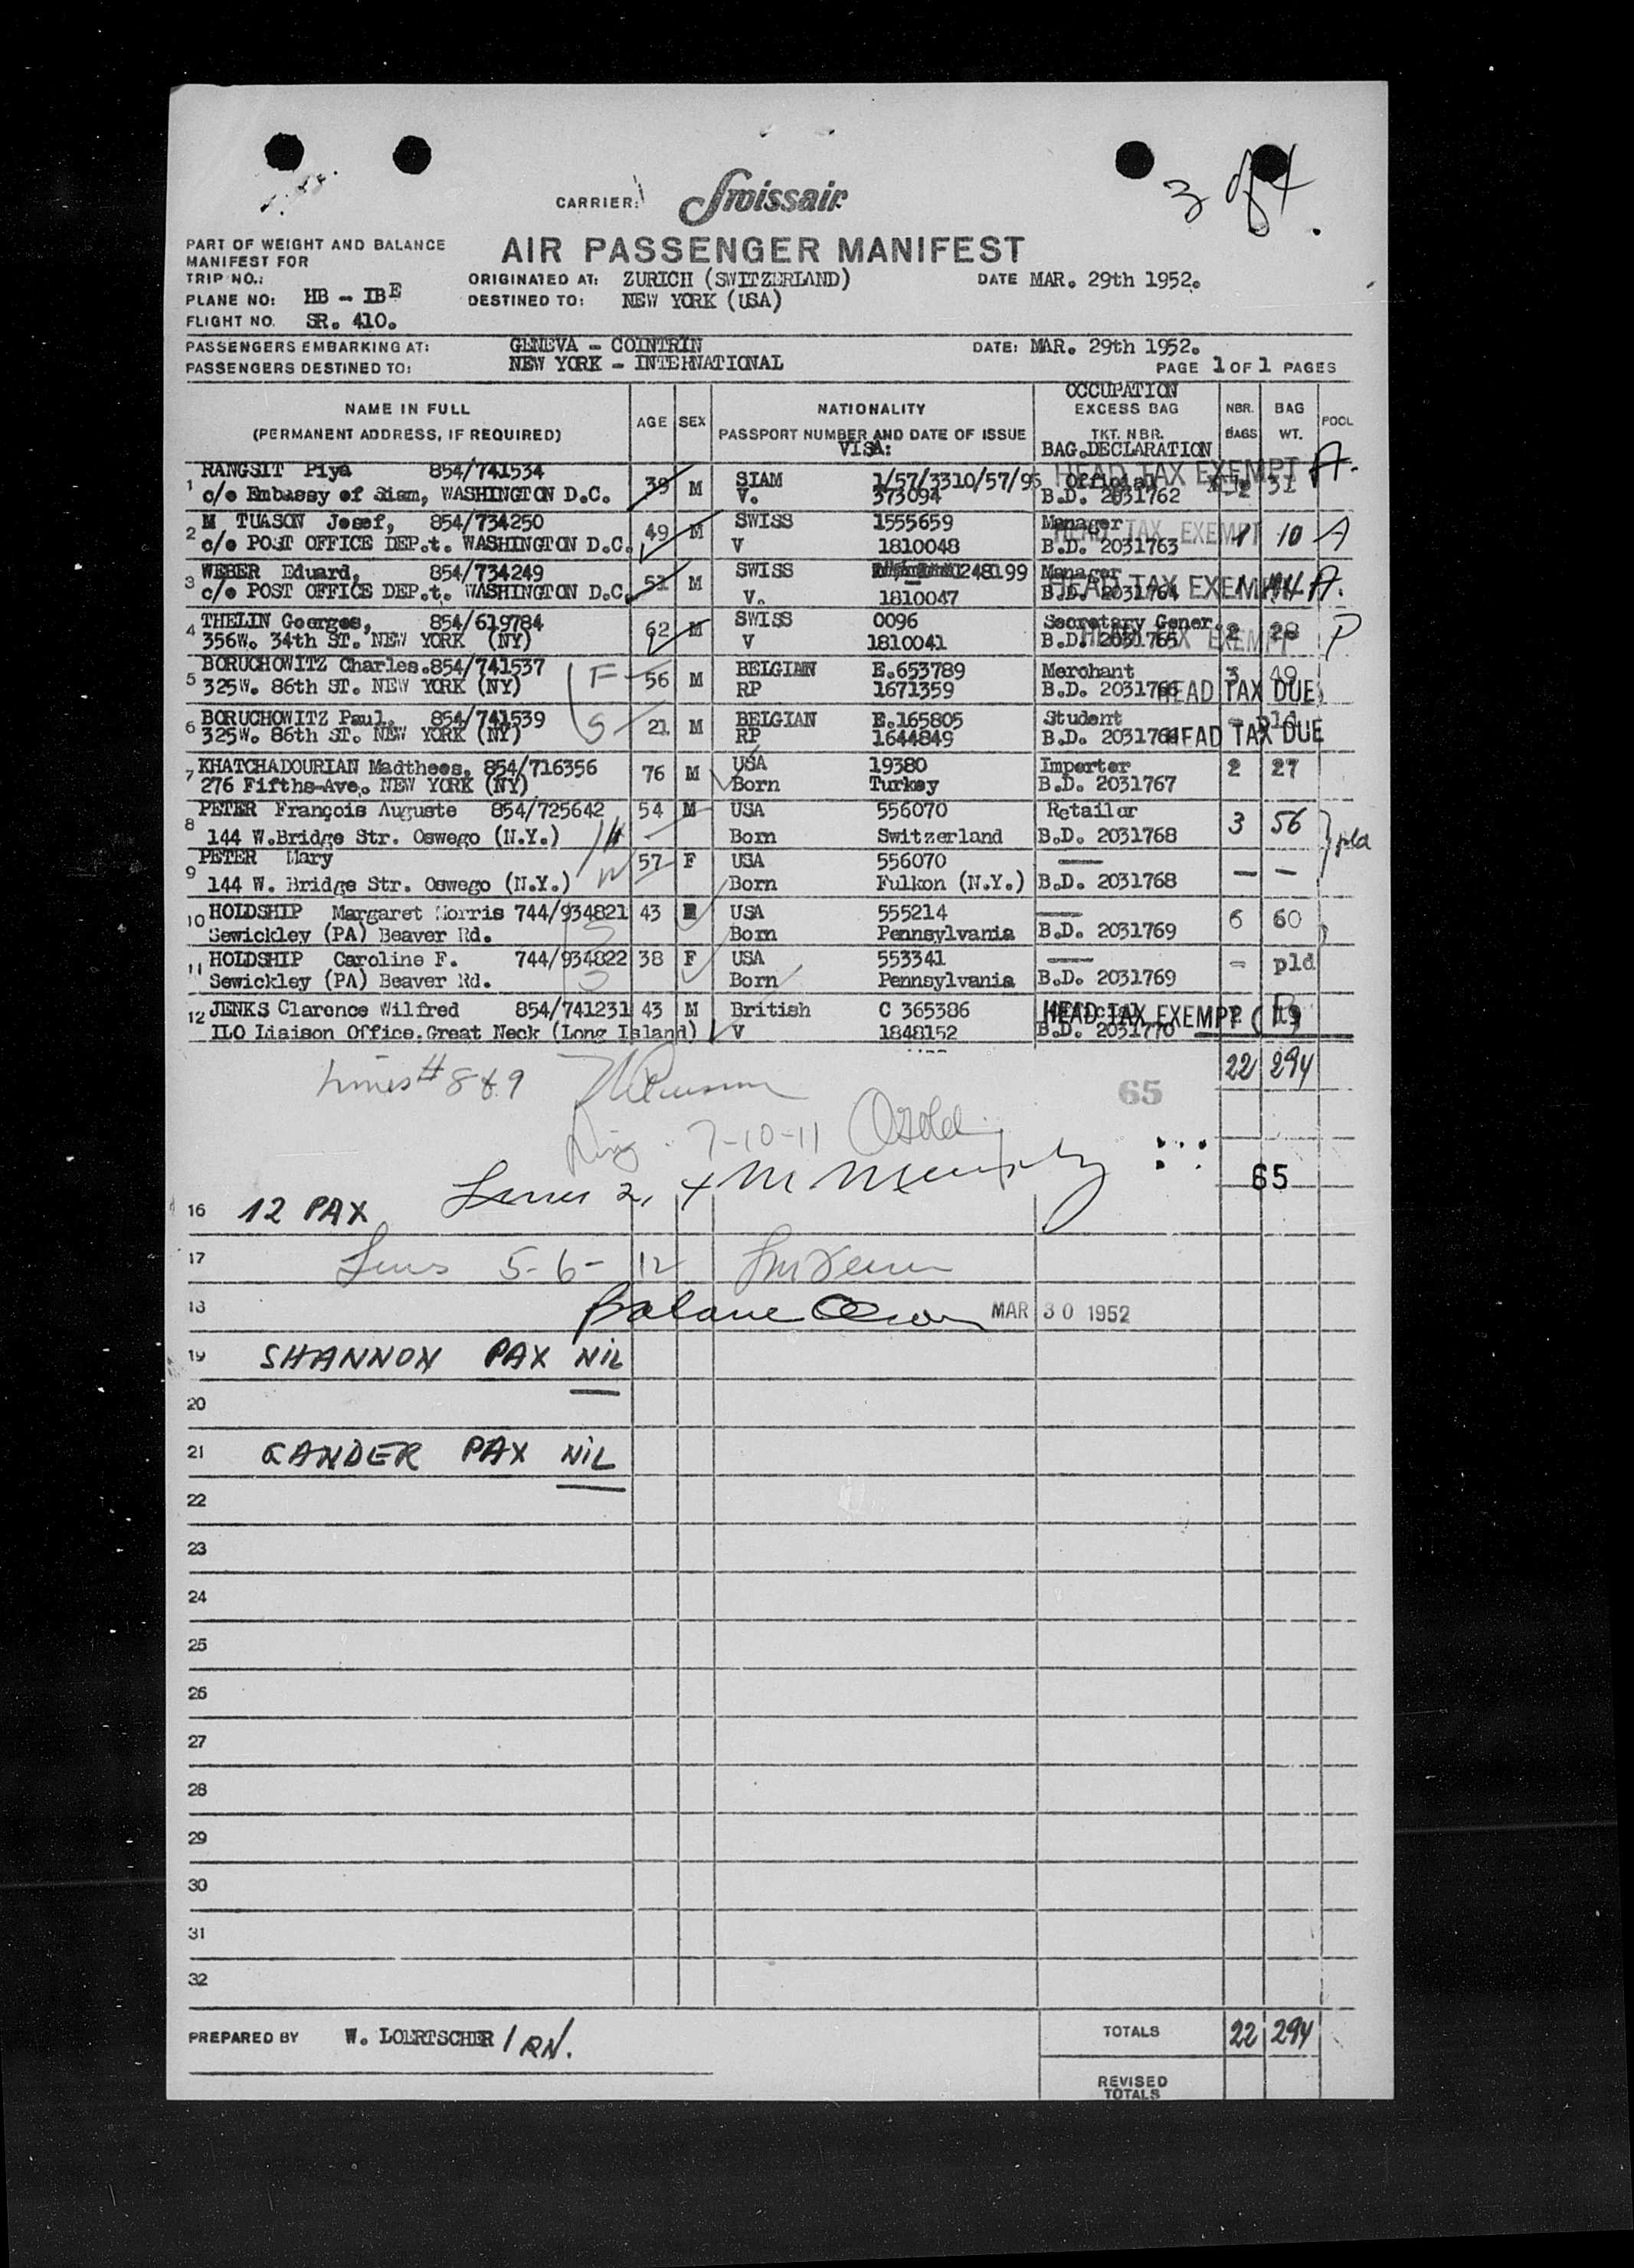 3 of 4.
CARRIER: Swissair
PART OF WEIGHT AND BALANCE
MANIFEST FOR
AIR PASSENGER MANIFEST
TRIP NO.: ORIGINATED AT: ZURICH (SWITZERLAND) DATE MAR. 29th 1952.
PLANE NO: HB - IBE DESTINED TO: NEW YORK (USA)
FLIGHT NO. SR. 410.
PASSENGERS EMBARKING AT: GENEVA - COINTRIN DATE: MAR. 29th 1952.
PASSENGERS DESTINED TO: NEW YORK - INTERNATIONAL PAGE 1 OF 1 PAGES
OCCUPATION
NAME IN FULL AGE SEX NATIONALITY EXCESS BAG NBR. BAG POOL
(PERMANENT ADDRESS, IF REQUIRED) PASSPORT NUMBER AND DATE OF ISSUE TKT. NBR. BAGS WT.
VISA: BAG.DECLARATION
1 RANGSIT Piya 854/741534 39 M SIAM 1/57/3310/57/95 Official HEAD TAX EXEMPT 31 A.
c/o Embassy of Siam, WASHINGTON D.C. V. 373094 B.D. 2031762
2 M TUASON Josef, 854/734250 49 M SWISS 1555659 Manager HEAD TAX EXEMPT 1 10 A
c/o POST OFFICE DEP.t. WASHINGTON D.C. V 1810048 B.D. 2031763
3 WEBER Eduard, 854/734249 51 M SWISS 1248199 Manager HEAD TAX EXEMPT 1 14 A.
c/o POST OFFICE DEP.t. WASHINGTON D.C. V. 1810047 B.D. 2031764
4 THELIN Goerges, 854/619784 62 M SWISS 0096 Secretary Gener. HEAD TAX EXEMPT 2 28 P
356W. 34th ST. NEW YORK (NY) V 1810041 B.D. 2031765
5 BORUCHOWITZ Charles.854/741537 F 56 M BELGIAN E.653789 Merchant 3 49
325W. 86th ST. NEW YORK (NY) RP 1671359 B.D. 2031766 HEAD TAX DUE
6 BORUCHOWITZ Paul. 854/741539 S 21 M BELGIAN E.165805 Student - pld
325W. 86th ST. NEW YORK (NY) RP 1644849 B.D. 2031766 HEAD TAX DUE
7 KHATCHADOURIAN Madthees, 854/716356 76 M USA 19380 Importer 2 27
276 Fifths-Ave. NEW YORK (NY) Born Turkey B.D. 2031767
8 PETER François Auguste 854/725642 H 54 M USA 556070 Retailor 3 56
144 W.Bridge Str. Oswego (N.Y.) Born Switzerland B.D. 2031768 pld
9 PETER Mary W 57 F USA 556070 — — —
144 W. Bridge Str. Oswego (N.Y.) Born Fulkon (N.Y.) B.D. 2031768
10 HOLDSHIP Margaret Norris 744/934821 43 USA 555214 — 6 60
Sewickley (PA) Beaver Rd. S Born Pennsylvania B.D. 2031769
11 HOLDSHIP Caroline F. 744/934822 38 F USA 553341 — - pld
Sewickley (PA) Beaver Rd. S Born Pennsylvania B.D. 2031769
12 JENKS Clarence Wilfred 854/741231 43 M British C 365386 Official HEAD TAX EXEMPT 2 19
ILO Liaison Office.Great Neck (Long Island) V 1848152 B.D. 2031770
22 294
Lines # 8 & 9
65
7-10-11
65
Lines 2, 4 M Murphy
16 12 PAX
17 Lines 5-6-12
18 Balance MAR 30 1952
19 SHANNON PAX NIL
20
21 GANDER PAX NIL
22
23
24
25
26
27
28
29
30
31
32
PREPARED BY W. LOERTSCHER / RN. TOTALS 22 294
REVISED
TOTALS